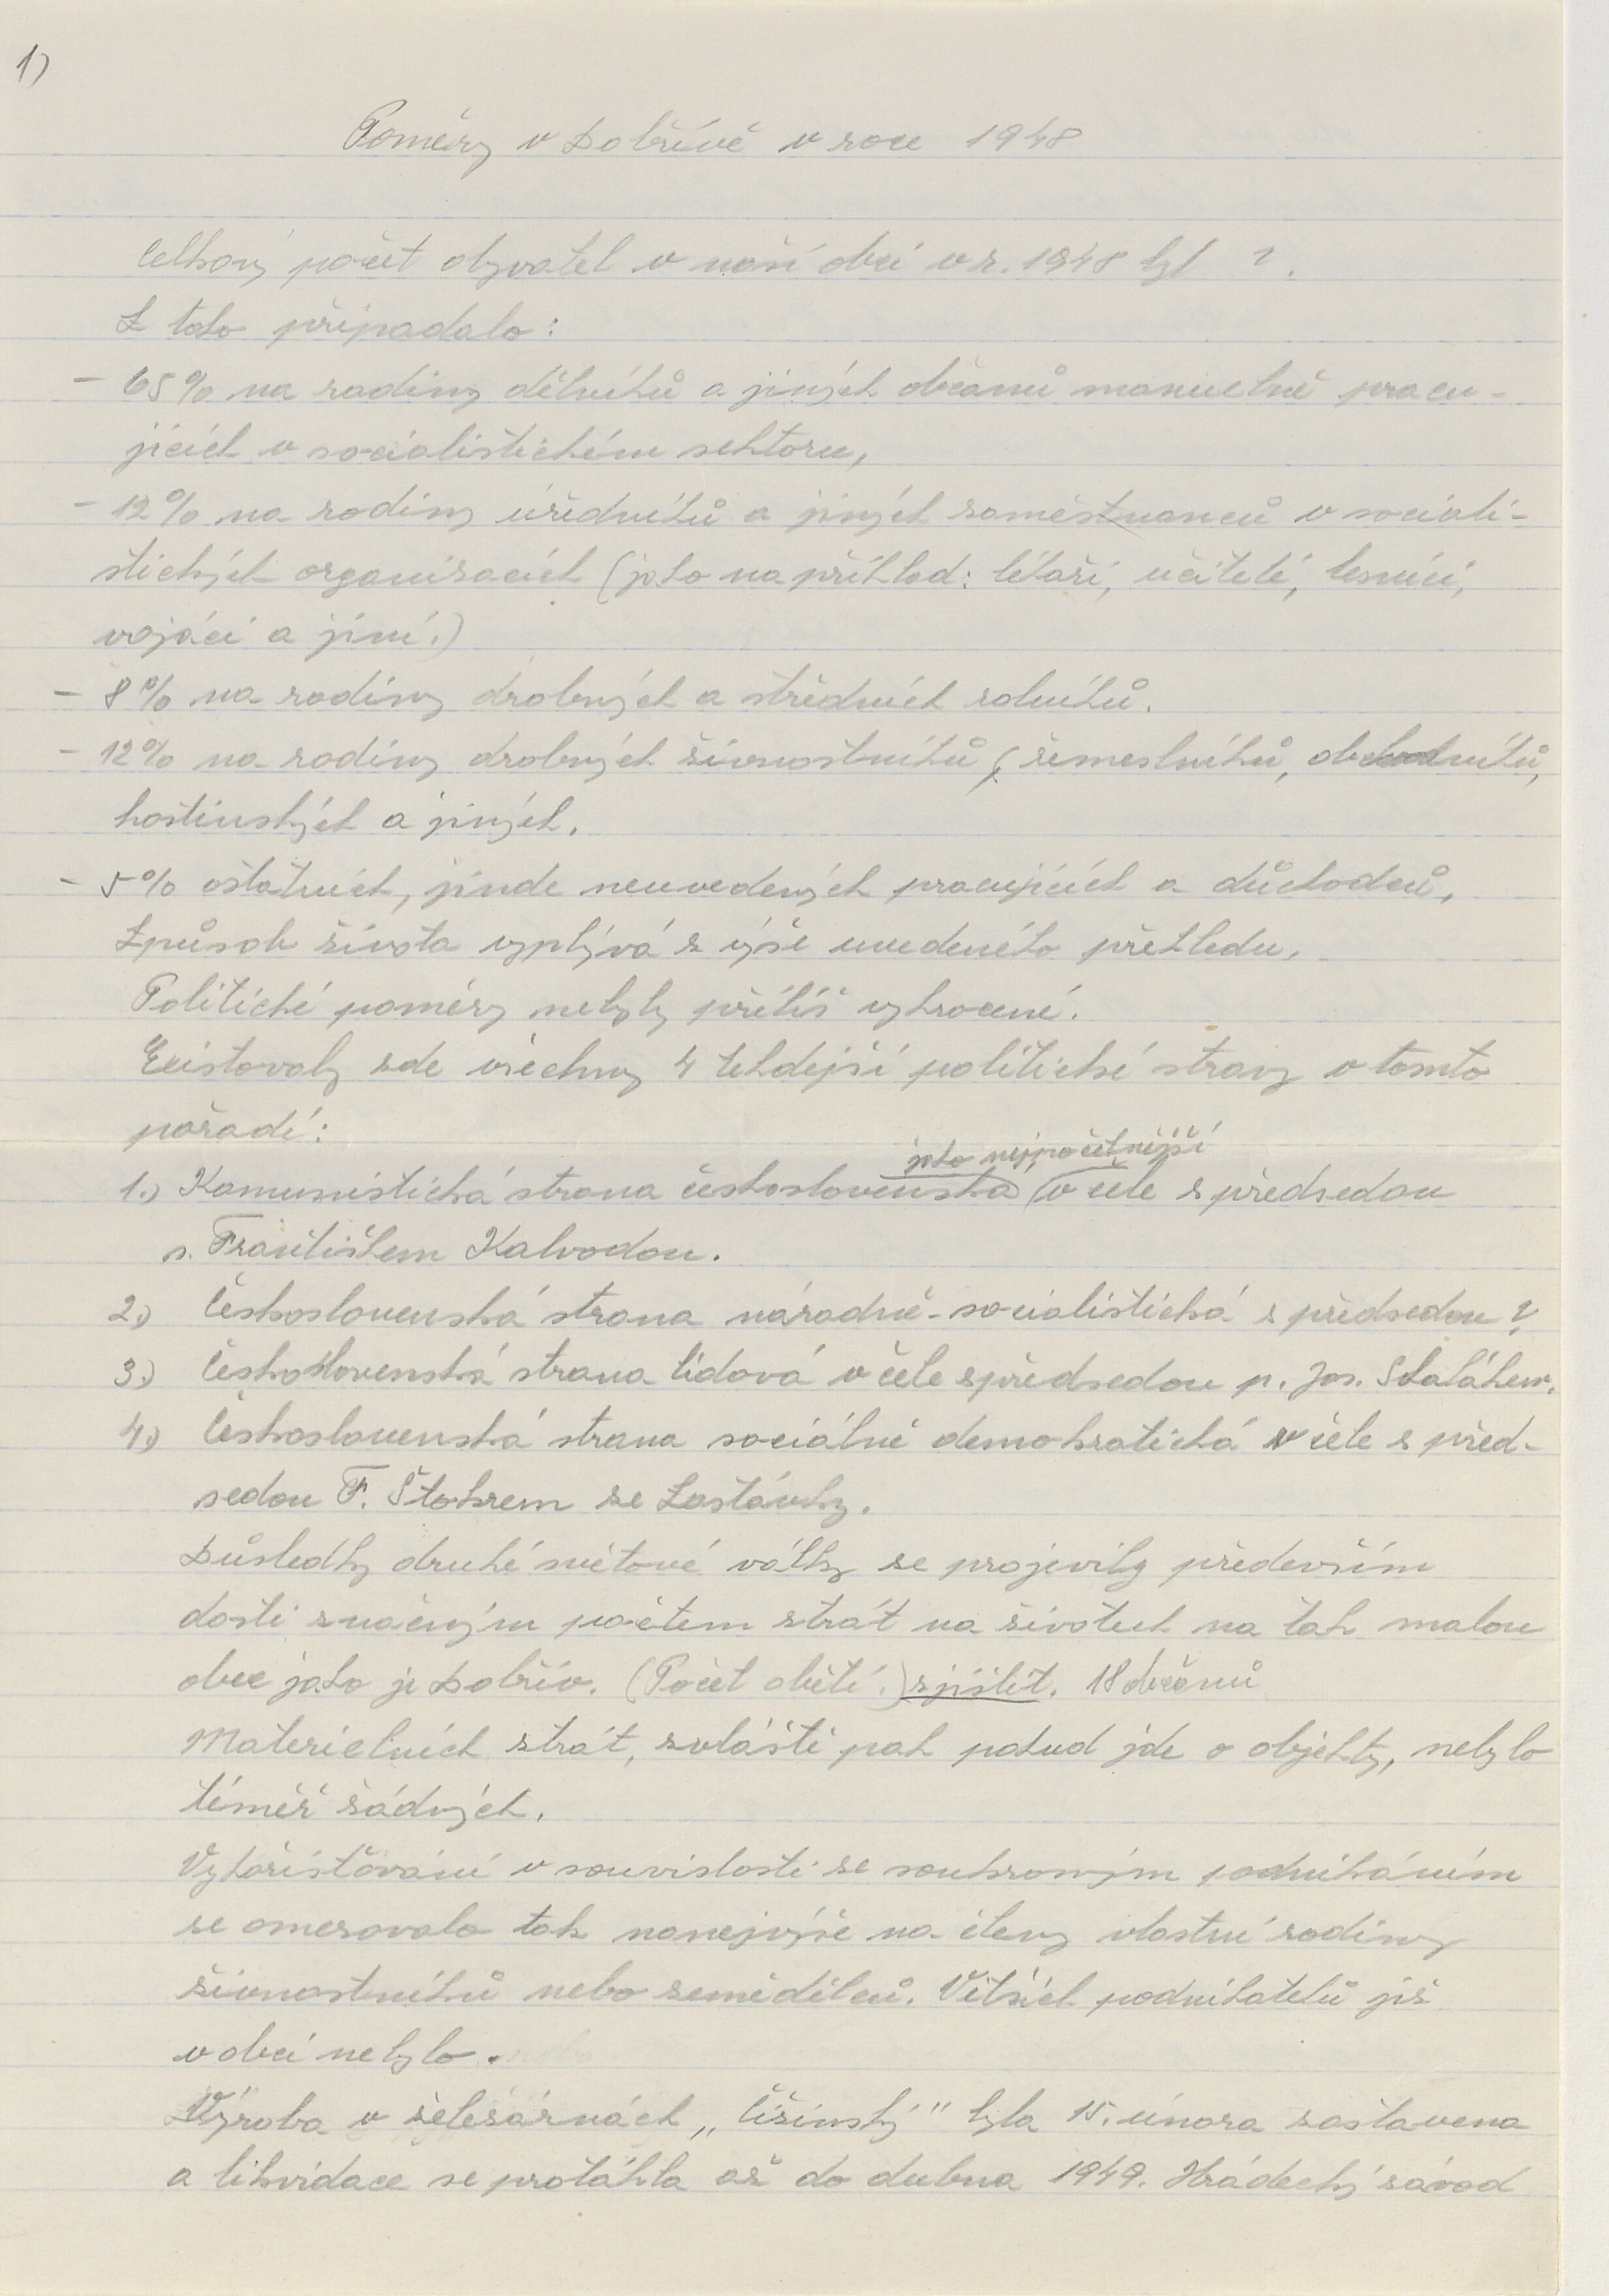 1)
Poměry v Dobřívě v roce 1948
Celkový počet obyvatel v naší obci v r. 1948 byl ?.
Z toho připadalo:
- 65% na rodiny dělníků a jiných občanů manuelně pracu-
jících v socialistickém sektoru,
- 12% na rodiny úředníků a jiných zaměstnanců v sociali-
stických organisacích (jako na příklad: lékaři, učitelé, lesníci,
vojáci a jiní.)
- 8% na rodiny drobných a středních rolníků.
- 12% na rodiny drobných živnostníků, řemeslníků, obchodníků,
hostinských a jiných.
- 5% ostatních, jinde neuvedených pracujících a důchodců.
Způsob života vyplývá z výše uvedeného přehledu.
Politické poměry nebyly příliš vyhrocené.
Existovaly zde všechny 4 tehdejší politické strany v tomto
pořadí:
jako nejpočetnější
1.) Komunistická strana československa v čele s předsedou
s. Františkem Kalvodou.
2.) Československá strana národně-socialistická s předsedou ?
3.) Československá strana lidová v čele s předsedou p. Jos. Skalákem.
4.) Československá strana sociálně demokratická v čele s před-
sedou F. Štohrem ze Zastávky.
Důsledky druhé světové války se projevily především
dosti značným počtem ztrát na životech na tak malou
obec jako je Dobřív. (Počet obětí.) zjistit. 18 občanů
Materielních ztrát, zvláště pak pokud jde o objekty, nebylo
téměř žádných.
Vykořisťování v souvislosti se soukromým podnikáním
se omezovalo tak nanejvýše na členy vlastní rodiny
živnostníků nebo zemědělců. Větších podnikatelů již
v obci nebylo.
Výroba v železárnách „Čížinský" byla 15. února zastavena
a likvidace se protáhla až do dubna 1949. Hrádecký závod